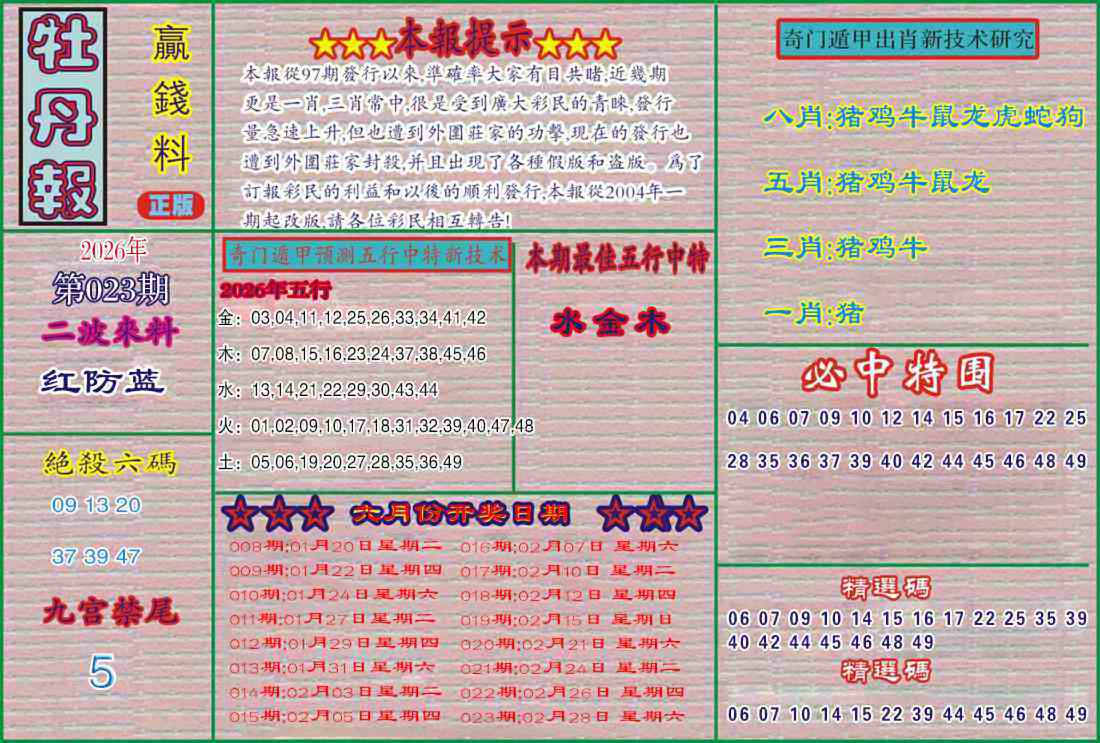 牡丹報
贏錢料
正版
2026年
第023期
二波來料
红防蓝
絕殺六碼
09 13 20
37 39 47
九宫禁尾
5
★★★本報提示★★★
本報從97期發行以來,準確率大家有目共睹,近幾期
更是一肖,三肖常中,很是受到廣大彩民的青睞,發行
量急速上升,但也遭到外圍莊家的功擊,現在的發行也
遭到外圍莊家封殺,并且出現了各種假版和盗版。爲了
訂報彩民的利益和以後的順利發行,本報從2004年一
期起改版,請各位彩民相互轉告!
奇门遁甲预测五行中特新技术
2026年五行
金：03,04,11,12,25,26,33,34,41,42
木：07,08,15,16,23,24,37,38,45,46
水：13,14,21,22,29,30,43,44
火：01,02,09,10,17,18,31,32,39,40,47,48
土：05,06,19,20,27,28,35,36,49
本期最佳五行中特
水金木
☆☆☆ 六月份开奖日期 ☆☆☆
008期:01月20日星期二 016期:02月07日 星期六
009期:01月22日星期四 017期:02月10日 星期二
010期:01月24日星期六 018期:02月12日 星期四
011期:01月27日星期二 019期:02月15日 星期日
012期:01月29日星期四 020期:02月21日 星期六
013期:01月31日星期六 021期:02月24日 星期二
014期:02月03日星期二 022期:02月26日 星期四
015期:02月05日星期四 023期:02月28日 星期六
奇门遁甲出肖新技术研究
八肖:猪鸡牛鼠龙虎蛇狗
五肖:猪鸡牛鼠龙
三肖:猪鸡牛
一肖:猪
必中特围
04 06 07 09 10 12 14 15 16 17 22 25
28 35 36 37 39 40 42 44 45 46 48 49
精選碼
06 07 09 10 14 15 16 17 22 25 35 39
40 42 44 45 46 48 49
精選碼
06 07 10 14 15 22 39 44 45 46 48 49